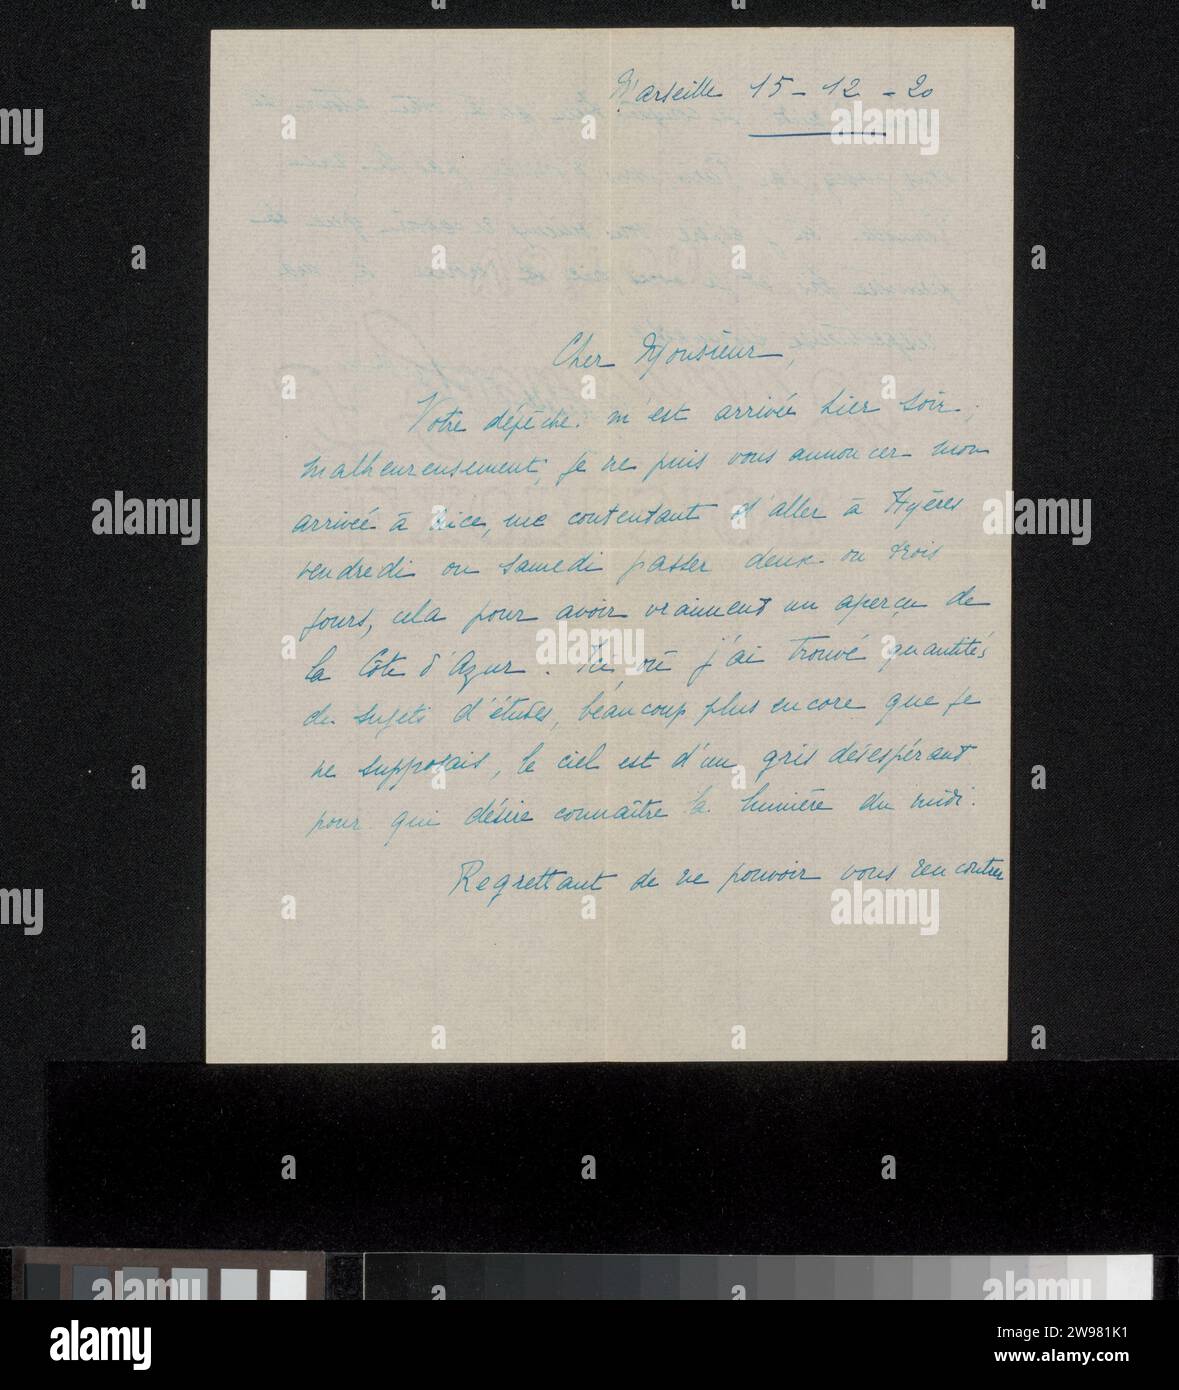 Marseille 15-12-20
Cher Monsieur,
Votre dépêche m'est arrivée hier soir,
malheureusement, je ne puis vous annoncer mon
arrivée à Nice, me contentant d'aller à Hyères
vendredi ou samedi passer deux ou trois
jours, cela pour avoir vraiment un aperçu de
la Côte d'Azur. Ici, où j'ai trouvé quantités
de sujets d'études, beaucoup plus encore que je
ne supposais, le ciel est d'un gris désespérant
pour qui désire connaître la lumière du midi.
Regrettant de ne pouvoir vous rencontrer
alamy
Image ID: 2W981K1
www.alamy.com